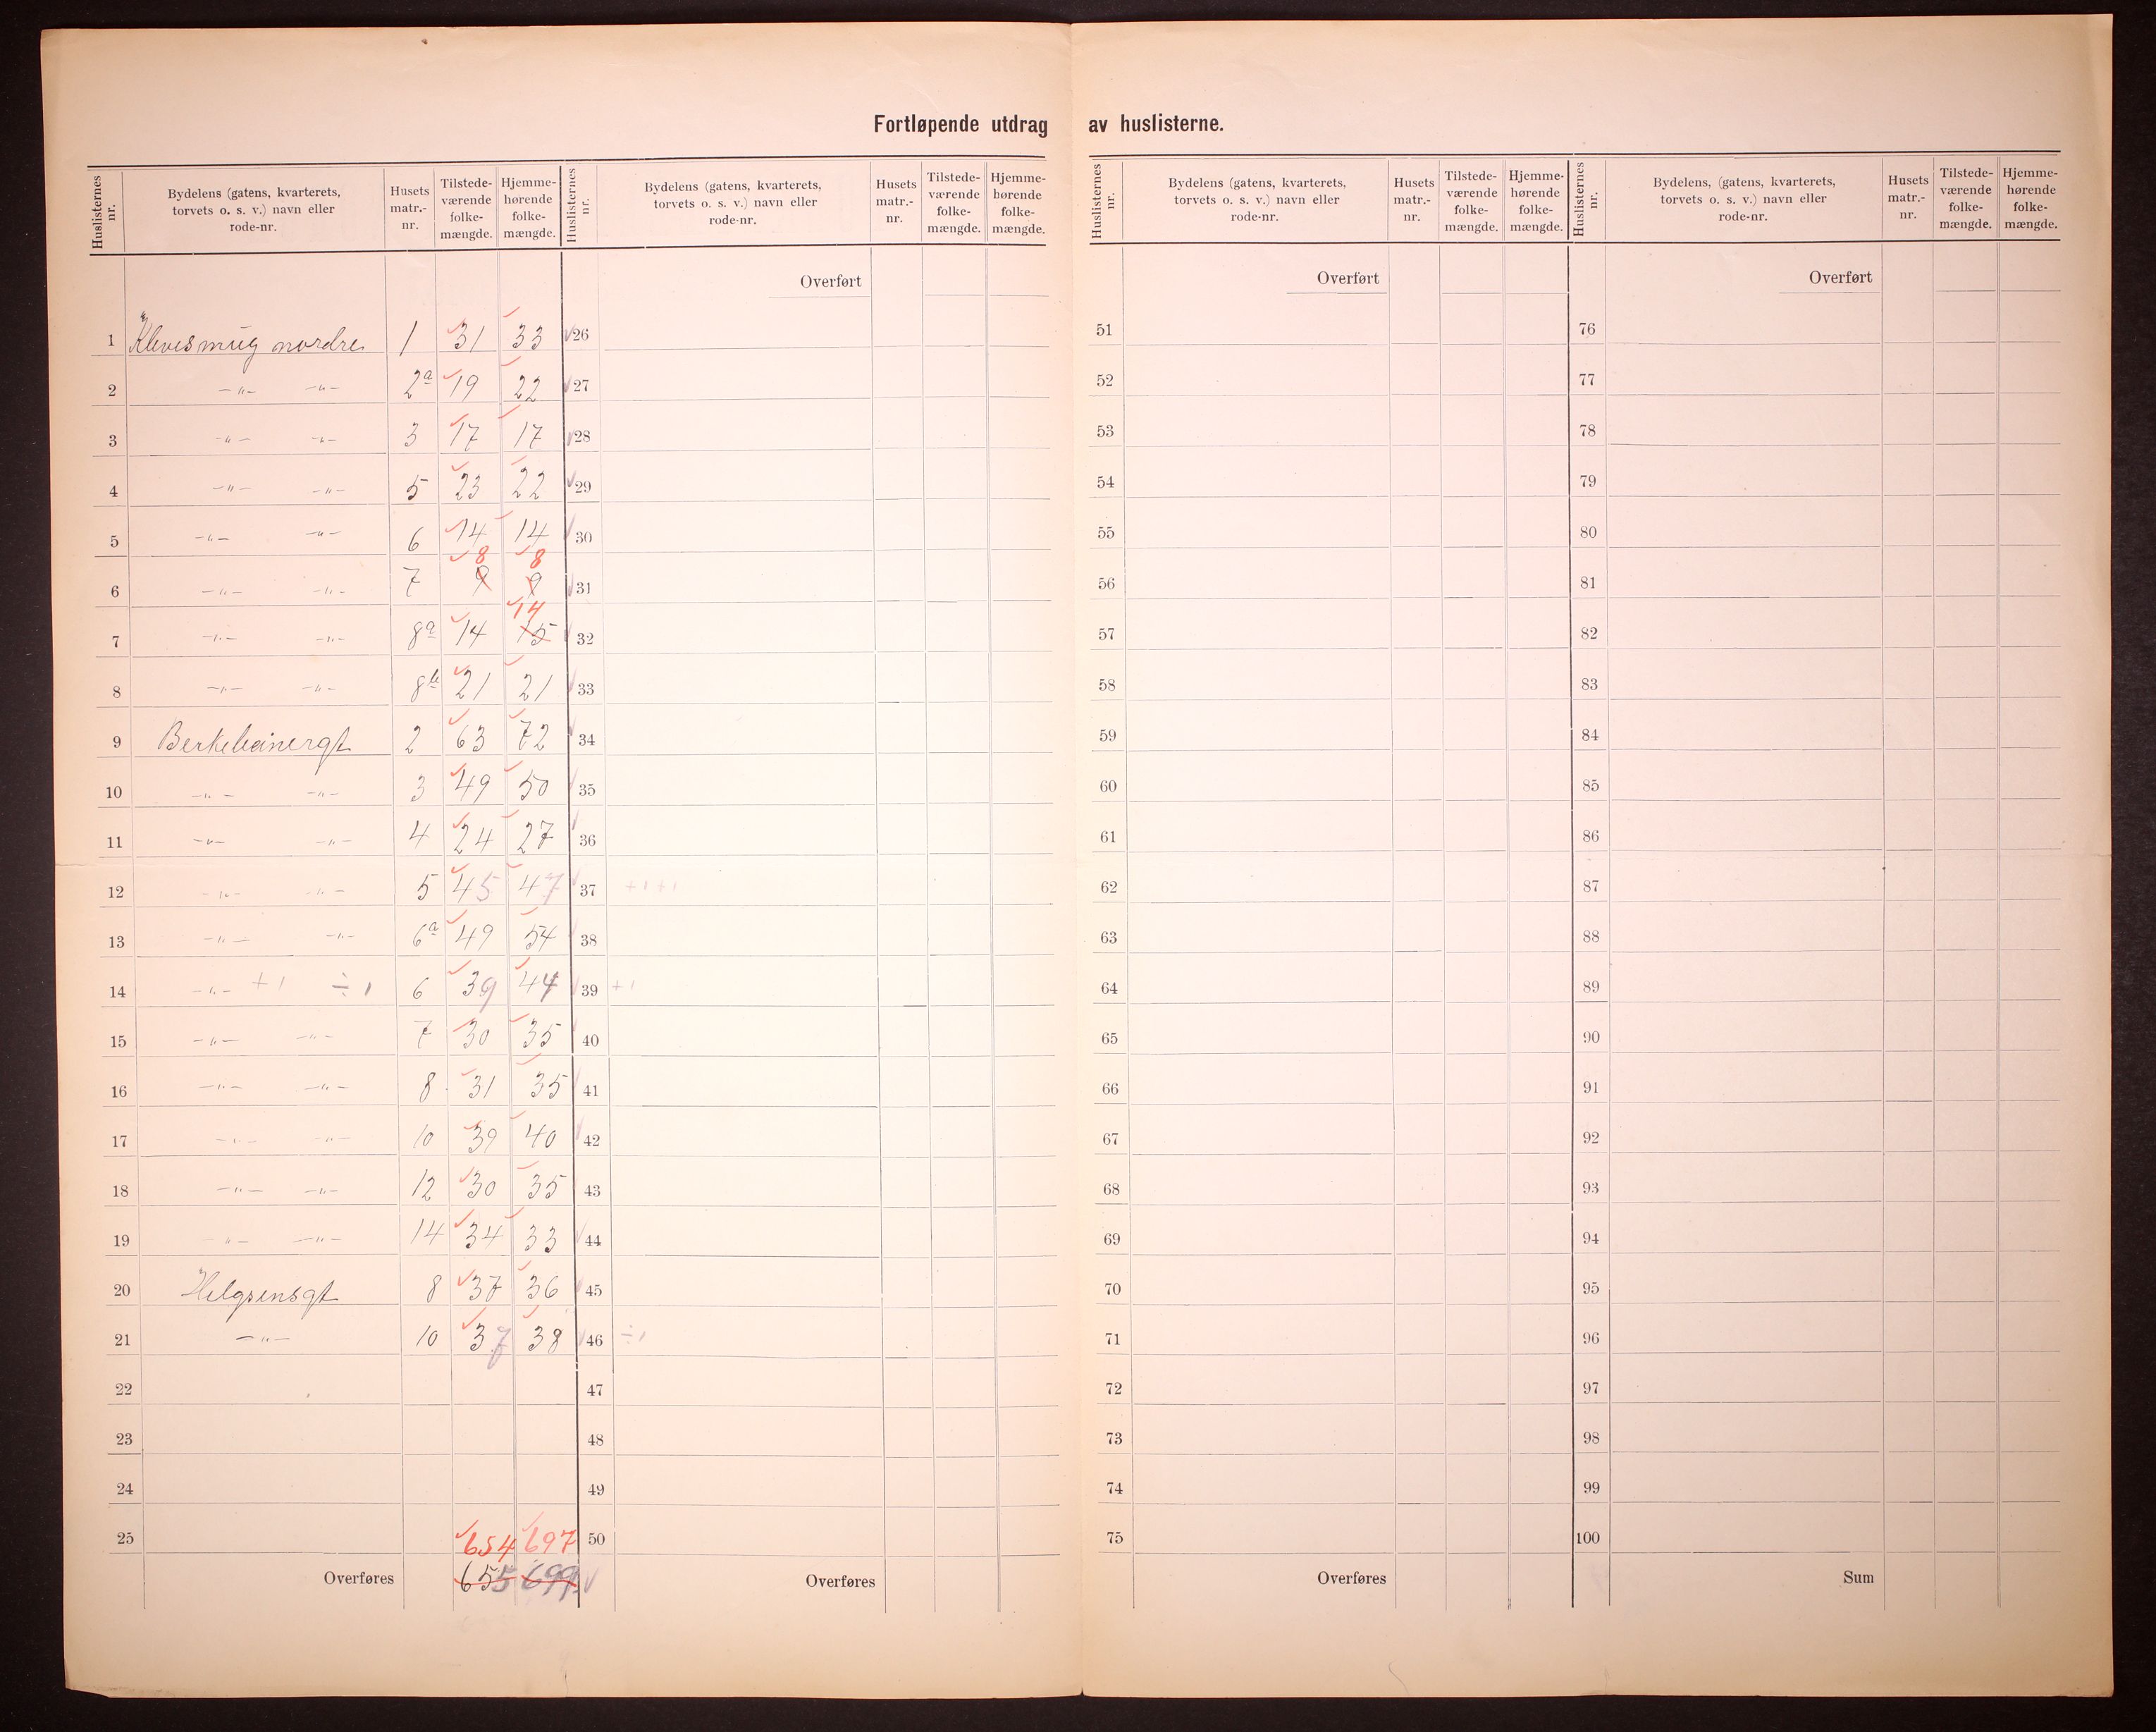 Fortløpende utdrag av huslisterne.
Huslisternes nr. | Bydelens (gatens, kvarterets, torvets o. s. v.) navn eller rode-nr. | Husets matr.-nr. | Tilstede-værende folke-mængde. | Hjemme-hørende folke-mængde.
1 Klevesmug nordre 1 31 33
2 -„- -„- 2a 19 22
3 -„- -„- 3 17 17
4 -„- -„- 5 23 22
5 -„- -„- 6 14 14
8 8
6 -„- -„- 7 9 9
14
7 -„- -„- 8a 14 15
8 -„- -„- 8b 21 21
9 Berkebeinergt 2 63 72
10 -„- -„- 3 49 50
11 -„- -„- 4 24 27
12 -„- -„- 5 45 47
13 -„- -„- 6a 49 54
14 -„- +1 ÷1 6 39 44
15 -„- -„- 7 30 35
16 -„- -„- 8 31 35
17 -„- -„- 10 39 40
18 -„- -„- 12 30 35
19 -„- -„- 14 34 33
20 Helgesensgt 8 37 36
21 -„- 10 37 38
22
23
24
25 654 697
Overføres 655 699
Huslisternes nr. | Bydelens (gatens, kvarterets, torvets o. s. v.) navn eller rode-nr. | Husets matr.-nr. | Tilstede-værende folke-mængde. | Hjemme-hørende folke-mængde.
Overført
26
27
28
29
30
31
32
33
34
35
36
37 +1+1
38
39 +1
40
41
42
43
44
45
46 ÷1
47
48
49
50
Overføres
Huslisternes nr. | Bydelens (gatens, kvarterets, torvets o. s. v.) navn eller rode-nr. | Husets matr.-nr. | Tilstede-værende folke-mængde. | Hjemme-hørende folke-mængde.
Overført
51
52
53
54
55
56
57
58
59
60
61
62
63
64
65
66
67
68
69
70
71
72
73
74
75
Overføres
Huslisternes nr. | Bydelens, (gatens, kvarterets, torvets o. s. v.) navn eller rode-nr. | Husets matr.-nr. | Tilstede-værende folke-mængde. | Hjemme-hørende folke-mængde.
Overført
76
77
78
79
80
81
82
83
84
85
86
87
88
89
90
91
92
93
94
95
96
97
98
99
100
Sum